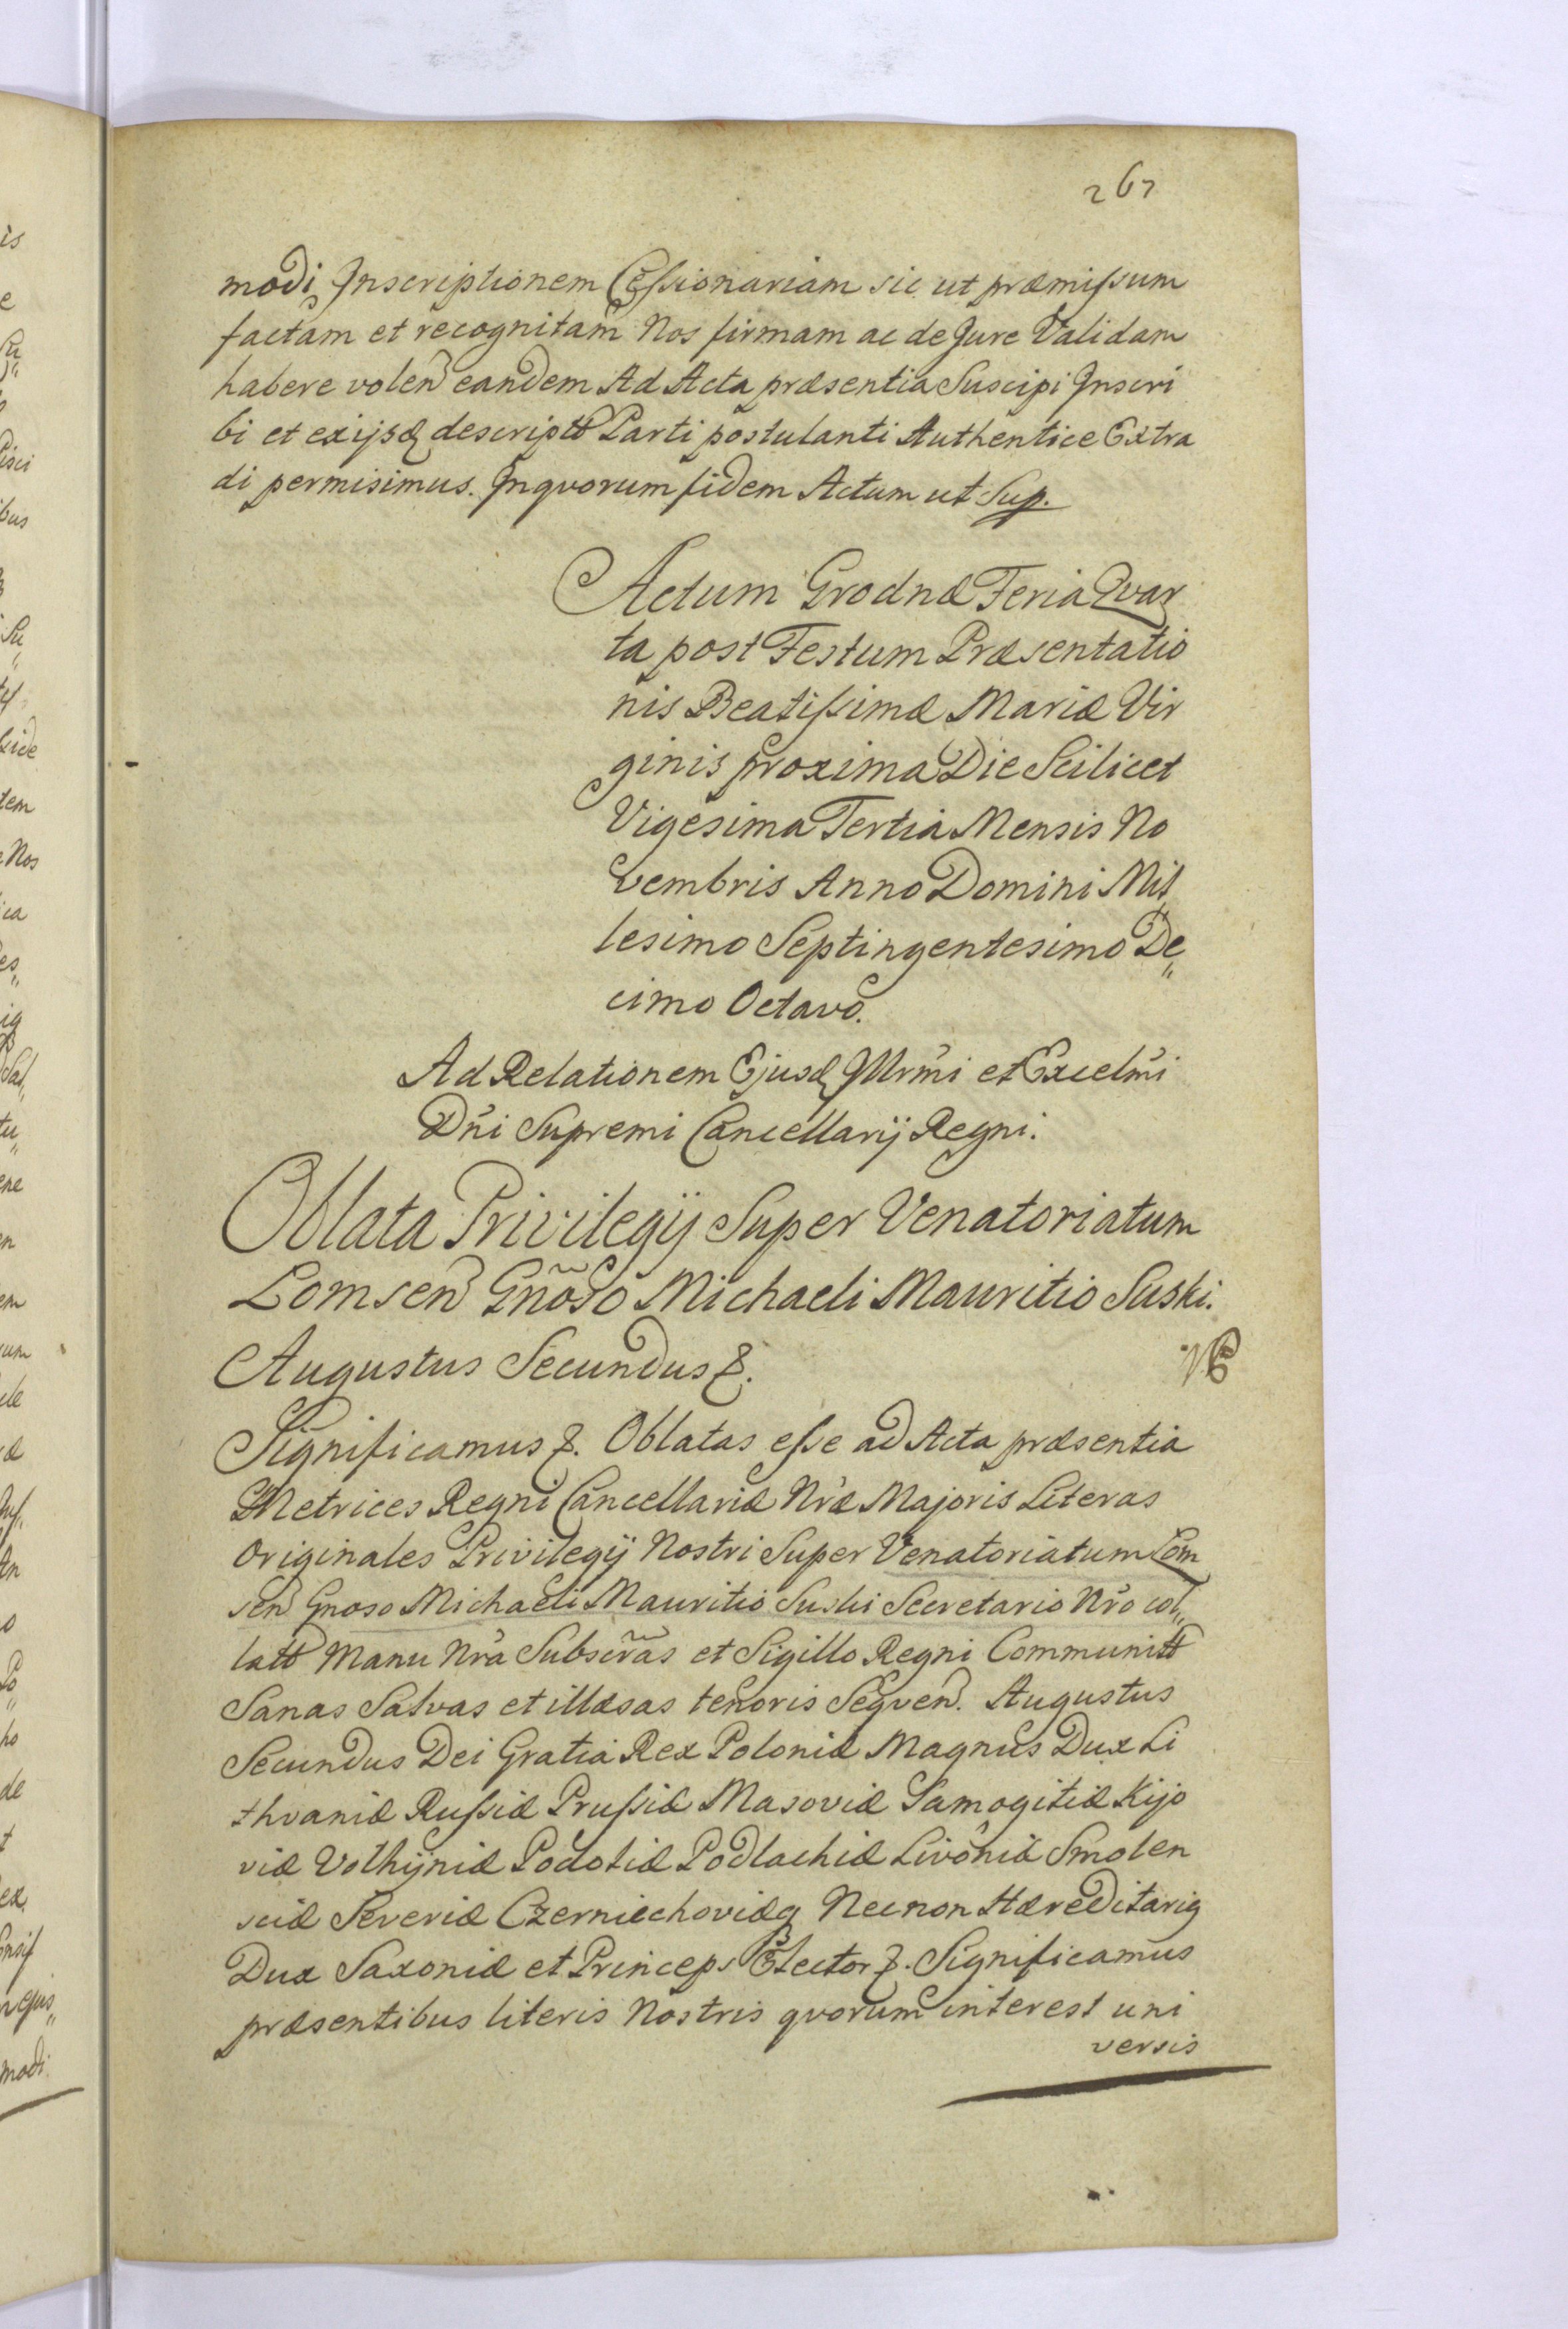 267
modi Inscriptionem Cessionariam sic ut præmissum
factam et recognitam Nos firmam ac de Jure Validam
habere volen eandem Ad Acta præsentia Suscipi Inscri
bi et ex ijsd descript Parti postulanti Authentice Extra
di permisimus. In quorum fidem Actum ut Sup.
Actum Grodnæ Feria Qvar
ta post Festum Præsentatio
nis Beatissimæ Mariæ Vir
ginis proxima Die Scilicet
Vigesima Tertia Mensis No
vembris Anno Domini Mil
lesimo Septingentesimo De„
cimo Octavo.
Ad Relationem Ejusd Illrmi et Excelmi
Dni Supremi Cancellarij Regni.
Oblata Privilegij Super Venatoriatum
Lomsen Gnoso Michaeli Mauritio Suski.
Augustus Secundus &.
Significamus &. Oblatas esse ad Acta præsentia
Metrices Regni Cancellariæ Nræ Majoris Literas
Originales Privilegij Nostri Super Venatoriatum Lom
sen Gnoso Michaeli Mauritio Suski Secretario Nro col„
latt Manu Nra Subscras et Sigillo Regni Communitt
Sanas Salvas et illæsas tenoris Seqven. Augustus
Secundus Dei Gratia Rex Poloniæ Magnus Dux Li
thvaniæ Russiæ Prussiæ Masoviæ Samogitiæ Kijo
viæ Volhijniæ Podoliæ Podlachiæ Livoniæ Smolen
sciæ Severiæ Czerniechoviæq Necnon Hæreditarig
Dux Saxoniæ et Princeps Elector &. Significamus
præsentibus literis Nostris qvorum interest uni
versis